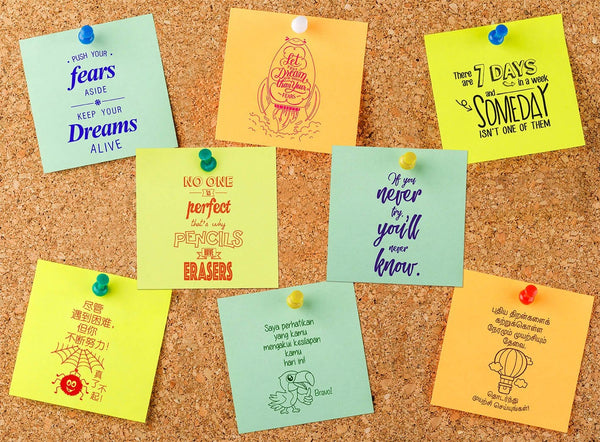 PUSH YOUR
fears
ASIDE
KEEP YOUR
Dreams
ALIVE
Let
Dream
than Your
FEARS
There are 7 DAYS in a week
and
SOMEDAY
ISN'T ONE OF THEM
NO ONE
is
perfect
that's why
PENCILS
have
ERASERS
If you
never
try,
you'll
never
know.
尽管
遇到困难,
但你
不断努力!
真
了不起!
Saya perhatikan
yang kamu
mengakui kesilapan
kamu
hari ini!
Bravo!
புதிய திறன்களைக்
கற்றுக்கொள்ள
நேரமும் முயற்சியும்
தேவை.
தொடர்ந்து
முயற்சி செய்யுங்கள்!